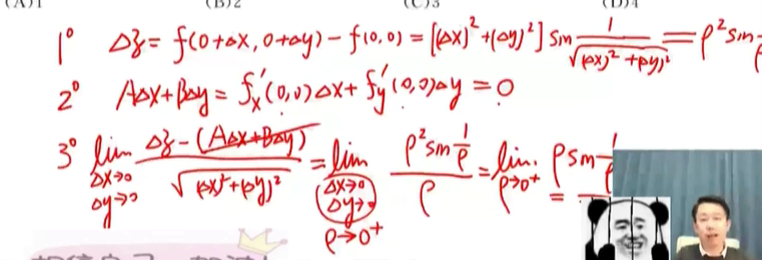 (A)1 (B)2 (C)3 (D)4
1° Δz = f(0+Δx, 0+Δy) − f(0,0) = [(Δx)² + (Δy)²] sin 1/√((Δx)² + (Δy)²) = ρ² sin
2° AΔx + BΔy = f'x(0,0)Δx + f'y(0,0)Δy = 0
3° lim Δx→0 Δy→0 (Δz − (AΔx + BΔy))/√((Δx)² + (Δy)²) = lim Δx→0 Δy→0 ρ→0⁺ (ρ² sin 1/ρ)/ρ = lim ρ→0⁺ ρ sin 1/ρ =